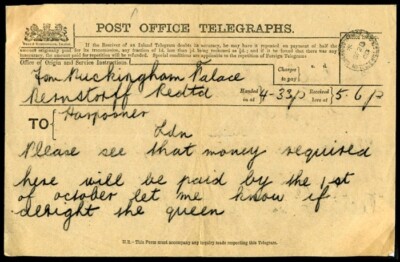 POST OFFICE TELEGRAPHS.
If the Receiver of an Inland Telegram doubts its accuracy, he may have it repeated on payment of half the
amount originally paid for its transmission, any fraction of 1d. less than ½d. being reckoned as ½d.; and if it be found that there was any
inaccuracy, the amount paid for repetition will be refunded. Special conditions are applicable to the repetition of Foreign Telegrams.
Office of Origin and Service Instructions.
Charges
to pay
s. d.
Buckingham Palace
Handed
in at
4-33p
Received
here at
5-6p
TO
Ldn
Please see that money required
here will be paid by the 1st
of october let me know if
alright the queen
N.B.—This Form must accompany any inquiry made respecting this Telegram.